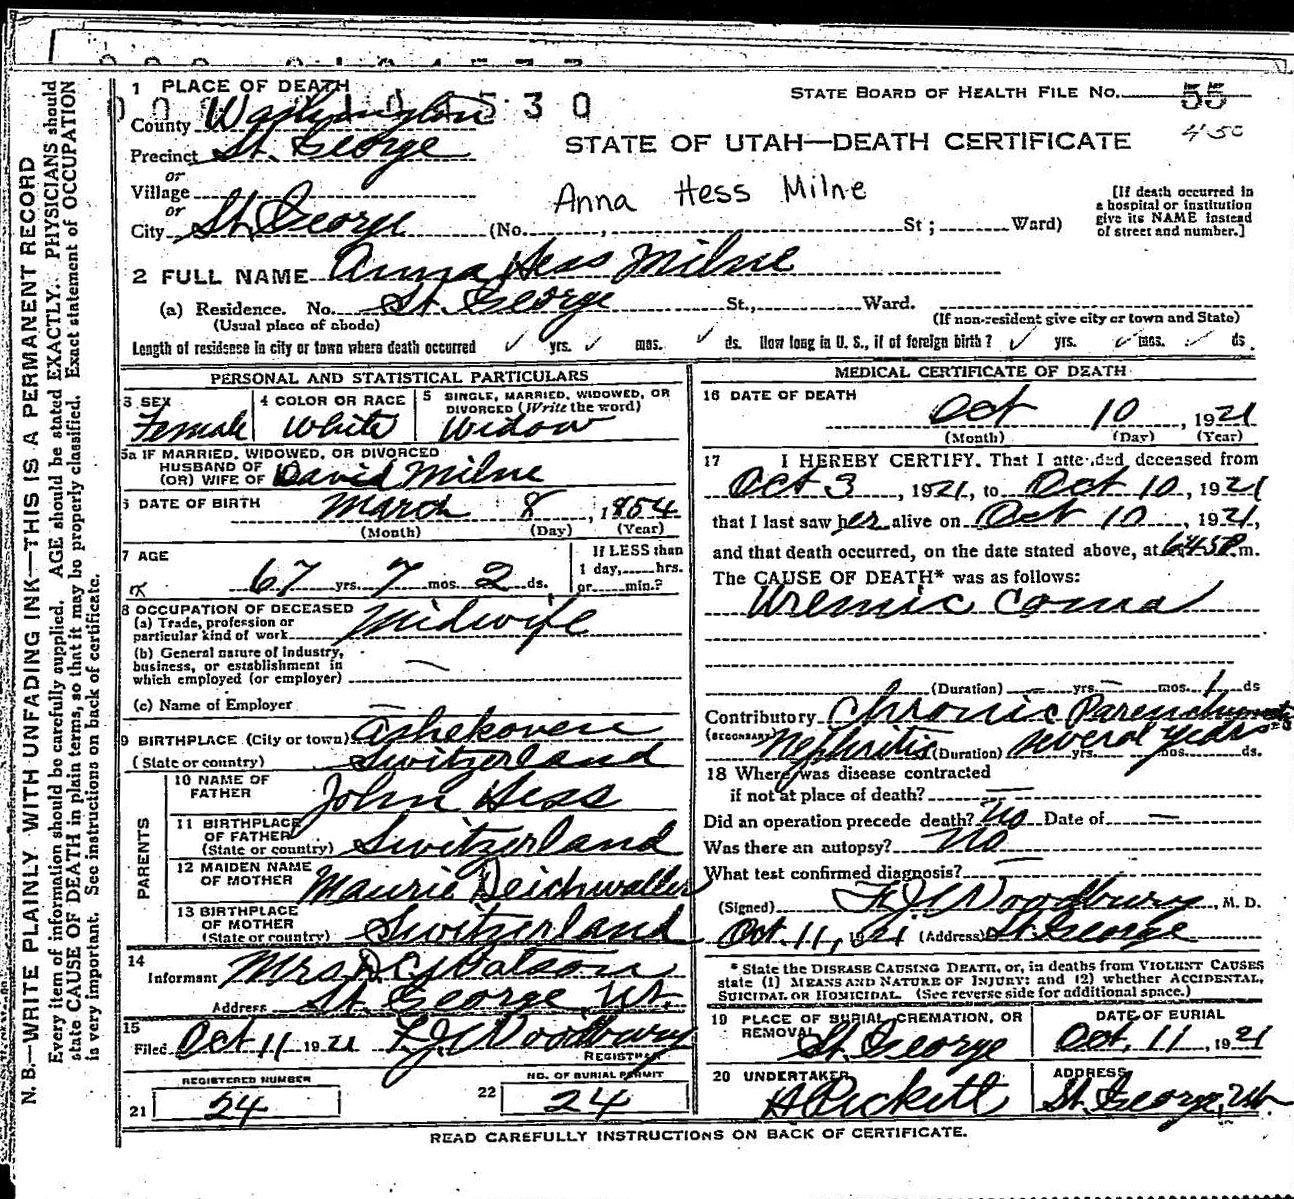 1 PLACE OF DEATH
County Washington
530
STATE BOARD OF HEALTH FILE No. 55
450
Precinct St. George
STATE OF UTAH—DEATH CERTIFICATE
or
Village
Anna Hess Milne
or
City St. George (No. , St; Ward)
[If death occurred in
a hospital or institution
give its NAME instead
of street and number.]
2 FULL NAME Anna Hess Milne
(a) Residence. No. St. George St., Ward.
(Usual place of abode)
(If non-resident give city or town and State)
Length of residense in city or town where death occurred ✓ yrs. ✓ mos. ✓ ds. How long in U. S., if of foreign birth? ✓ yrs. ✓ mos. ✓ ds.
PERSONAL AND STATISTICAL PARTICULARS
3 SEX
Female
4 COLOR OR RACE
White
5 SINGLE, MARRIED, WIDOWED, OR
DIVORCED (Write the word)
Widow
5a IF MARRIED, WIDOWED, OR DIVORCED
HUSBAND OF
(OR) WIFE OF David Milne
6 DATE OF BIRTH March 8, 1854
(Month) (Day) (Year)
7 AGE
67 yrs. 7 mos. 2 ds.
If LESS than
1 day, hrs.
or min.?
8 OCCUPATION OF DECEASED
(a) Trade, profession or
particular kind of work Midwife
(b) General nature of Industry,
business, or establishment in
which employed (or employer) —
(c) Name of Employer —
9 BIRTHPLACE (City or town) Ashekoven
(State or country) Switzerland
PARENTS
10 NAME OF
FATHER John Hess
11 BIRTHPLACE
OF FATHER
(State or country) Switzerland
12 MAIDEN NAME
OF MOTHER Maurie Deichwaller
13 BIRTHPLACE
OF MOTHER
(State or country) Switzerland
14
Informant Mrs D.C. Watson
Address St. George Ut.
15
Filed Oct 11 1921 F.J. Woodbury
REGISTRAR
REGISTERED NUMBER
21 24
NO. OF BURIAL PERMIT
22 24
MEDICAL CERTIFICATE OF DEATH
16 DATE OF DEATH
Oct 10, 1921
(Month) (Day) (Year)
17 I HEREBY CERTIFY, That I attended deceased from
Oct 3, 1921, to Oct 10, 1921
that I last saw her alive on Oct 10, 1921,
and that death occurred, on the date stated above, at 6:45 P.m.
The CAUSE OF DEATH* was as follows:
Uremic Coma
(Duration) — yrs. — mos. 1 ds
Contributory Chronic Parenchymatous
(SECONDARY) Nephritis (Duration) several years yrs. mos. ds.
18 Where was disease contracted
if not at place of death? —
Did an operation precede death? No Date of —
Was there an autopsy? No
What test confirmed diagnosis? —
(Signed) F.J. Woodbury, M. D.
Oct. 11, 1921 (Address) St. George
* State the DISEASE CAUSING DEATH, or, in deaths from VIOLENT CAUSES
state (1) MEANS AND NATURE OF INJURY; and (2) whether ACCIDENTAL,
SUICIDAL OR HOMICIDAL. (See reverse side for additional space.)
19 PLACE OF BURIAL, CREMATION, OR
REMOVAL St. George
DATE OF BURIAL
Oct. 11, 1921
20 UNDERTAKER
A Pickett
ADDRESS
St. George, Utah
READ CAREFULLY INSTRUCTIONS ON BACK OF CERTIFICATE.
N. B.—WRITE PLAINLY WITH UNFADING INK—THIS IS A PERMANENT RECORD
Every item of information should be carefully supplied. AGE should be stated EXACTLY. PHYSICIANS should
state CAUSE OF DEATH in plain terms, so that it may be properly classified. Exact statement of OCCUPATION
is very important. See instructions on back of certificate.